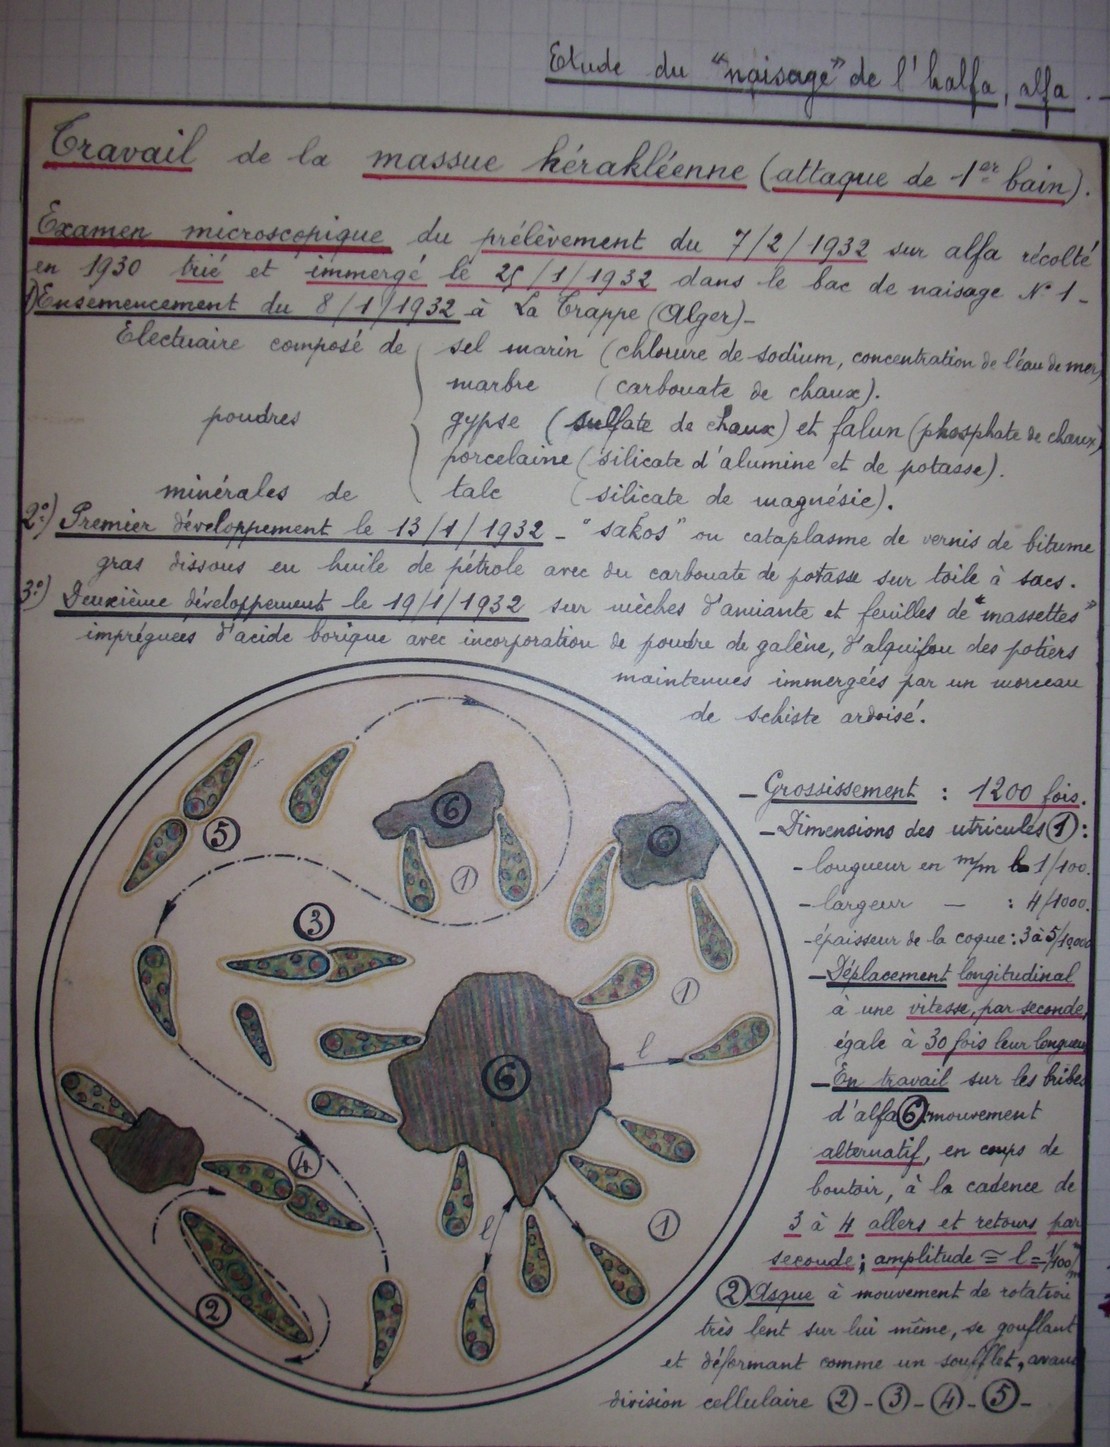 Etude du "naisage" de l'halfa, alfa.
Travail de la massue hérakléenne (attaque de 1er bain).
Examen microscopique du prélèvement du 7/2/1932 sur alfa récolté
en 1930 trié et immergé le 25/1/1932 dans le bac de naisage N° 1-
1) Ensemencement du 8/1/1932 à La Trappe (Alger)-
Electuaire composé de sel marin (chlorure de sodium, concentration de l'eau de mer)
marbre (carbonate de chaux).
poudres gypse (sulfate de chaux) et falun (phosphate de chaux)
porcelaine (silicate d'alumine et de potasse).
minérales de talc (silicate de magnésie).
2°) Premier développement le 13/1/1932 - "sakos" ou cataplasme de vernis de bitume
gras dissous en huile de pétrole avec du carbonate de potasse sur toile à sacs.
3°) Deuxième développement le 19/1/1932 sur mèches d'amiante et feuilles de "massettes"
imprégnées d'acide borique avec incorporation de poudre de galène, d'alquifou des potiers
maintenues immergées par un morceau
de schiste ardoisé.
- Grossissement : 1200 fois.
- Dimensions des utricules 1 :
- longueur en m/m l 1/100.
- largeur - : 4/1000.
- épaisseur de la coque : 3 à 5/10000
- Déplacement longitudinal
à une vitesse, par seconde,
égale à 30 fois leur longueur
- En travail sur les bribes
d'alfa 6 mouvement
alternatif, en coups de
boutoir, à la cadence de
3 à 4 allers et retours par
seconde ; amplitude ≅ l = 1/100 m/m
2 Asque à mouvement de rotation
très lent sur lui même, se gonflant
et déformant comme un soufflet, avant
division cellulaire 2 - 3 - 4 - 5 -
6
6
5
1
3
1
l
6
4
1
l
2